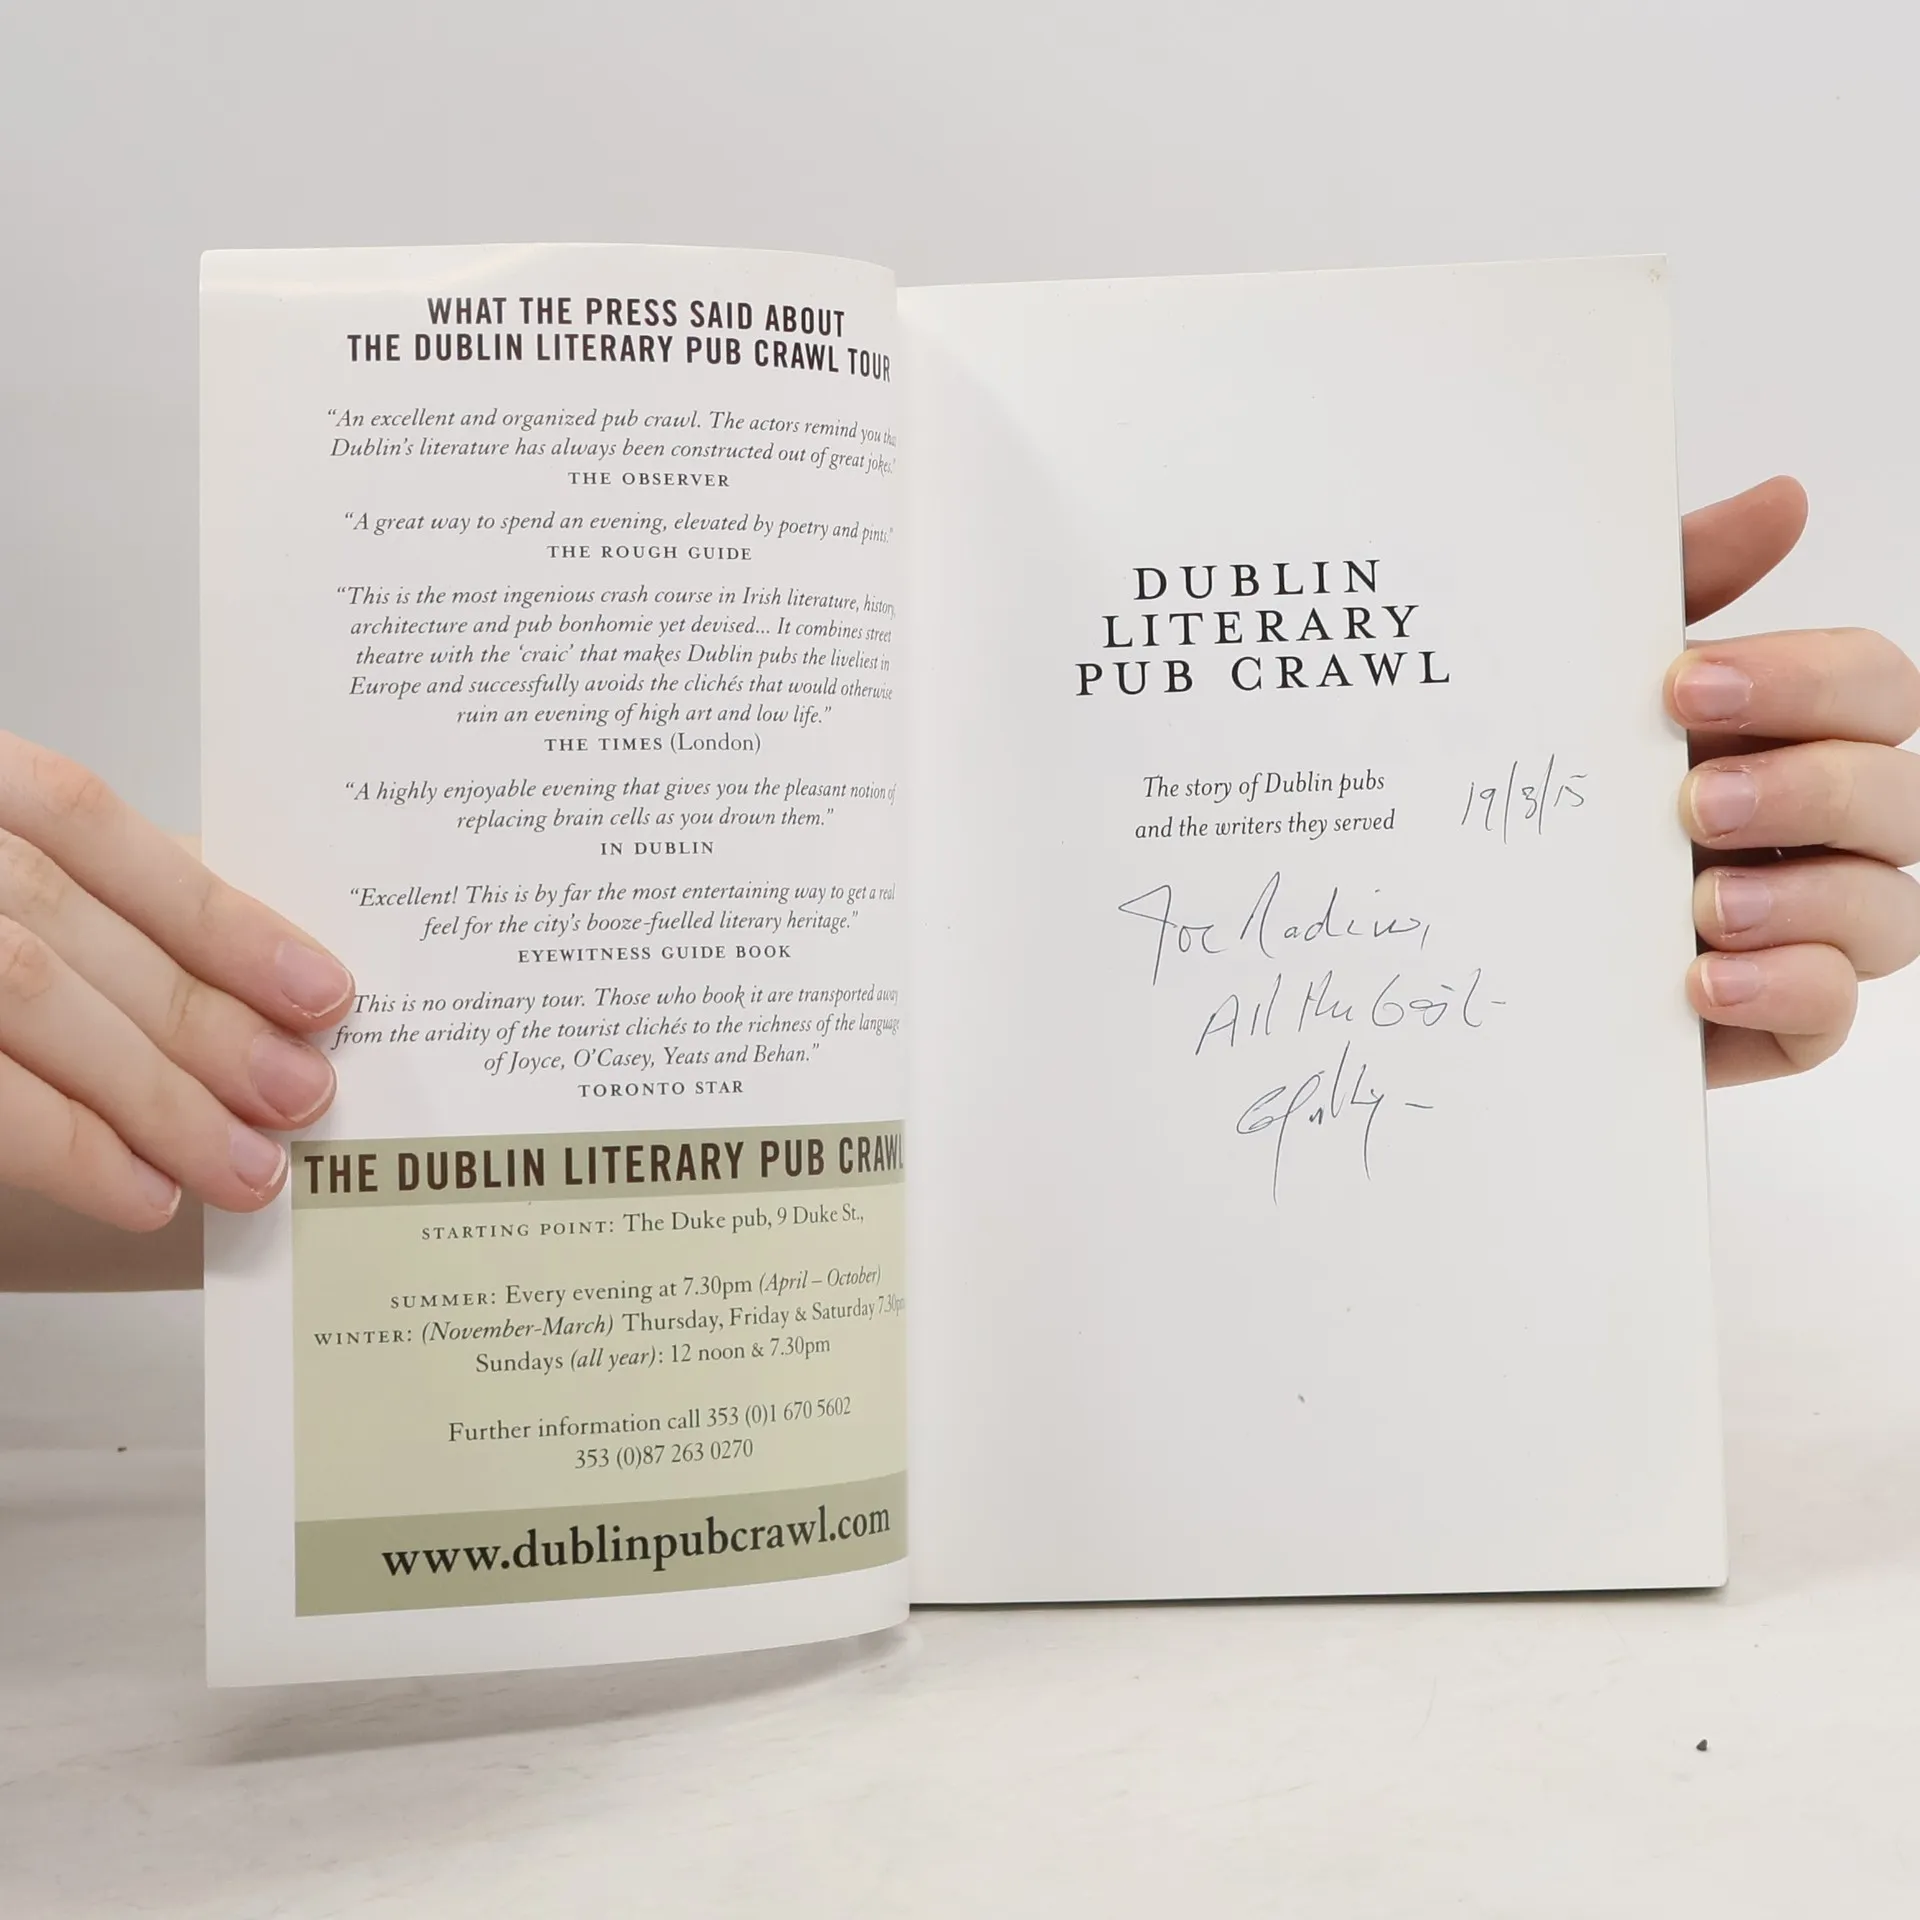 WHAT THE PRESS SAID ABOUT
THE DUBLIN LITERARY PUB CRAWL TOUR
“An excellent and organized pub crawl. The actors remind you that
Dublin’s literature has always been constructed out of great jokes.”
THE OBSERVER
“A great way to spend an evening, elevated by poetry and pints.”
THE ROUGH GUIDE
“This is the most ingenious crash course in Irish literature, history,
architecture and pub bonhomie yet devised... It combines street
theatre with the ‘craic’ that makes Dublin pubs the liveliest in
Europe and successfully avoids the clichés that would otherwise
ruin an evening of high art and low life.”
THE TIMES (London)
“A highly enjoyable evening that gives you the pleasant notion of
replacing brain cells as you drown them.”
IN DUBLIN
“Excellent! This is by far the most entertaining way to get a real
feel for the city’s booze-fuelled literary heritage.”
EYEWITNESS GUIDE BOOK
This is no ordinary tour. Those who book it are transported away
from the aridity of the tourist clichés to the richness of the language
of Joyce, O’Casey, Yeats and Behan.”
TORONTO STAR
THE DUBLIN LITERARY PUB CRAWL
STARTING POINT: The Duke pub, 9 Duke St.,
SUMMER: Every evening at 7.30pm (April – October)
WINTER: (November-March) Thursday, Friday & Saturday 7.30pm
Sundays (all year): 12 noon & 7.30pm
Further information call 353 (0)1 670 5602
353 (0)87 263 0270
www.dublinpubcrawl.com
DUBLIN
LITERARY
PUB CRAWL
The story of Dublin pubs
and the writers they served
19/8/15
All the